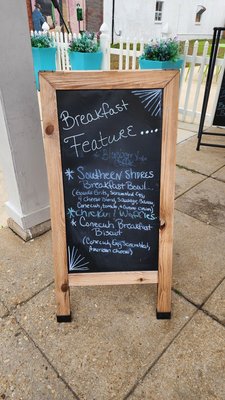 Breakfast
Feature....
* Southern Shires
Breakfast Bowl
(Gouda Grits, Scrambled Egg
Conecuh, tomato,
* Chicken / Waffles
* Conecuh Breakfast
Biscuit
(Conecuh, Egg Scrambled,
American Cheese)